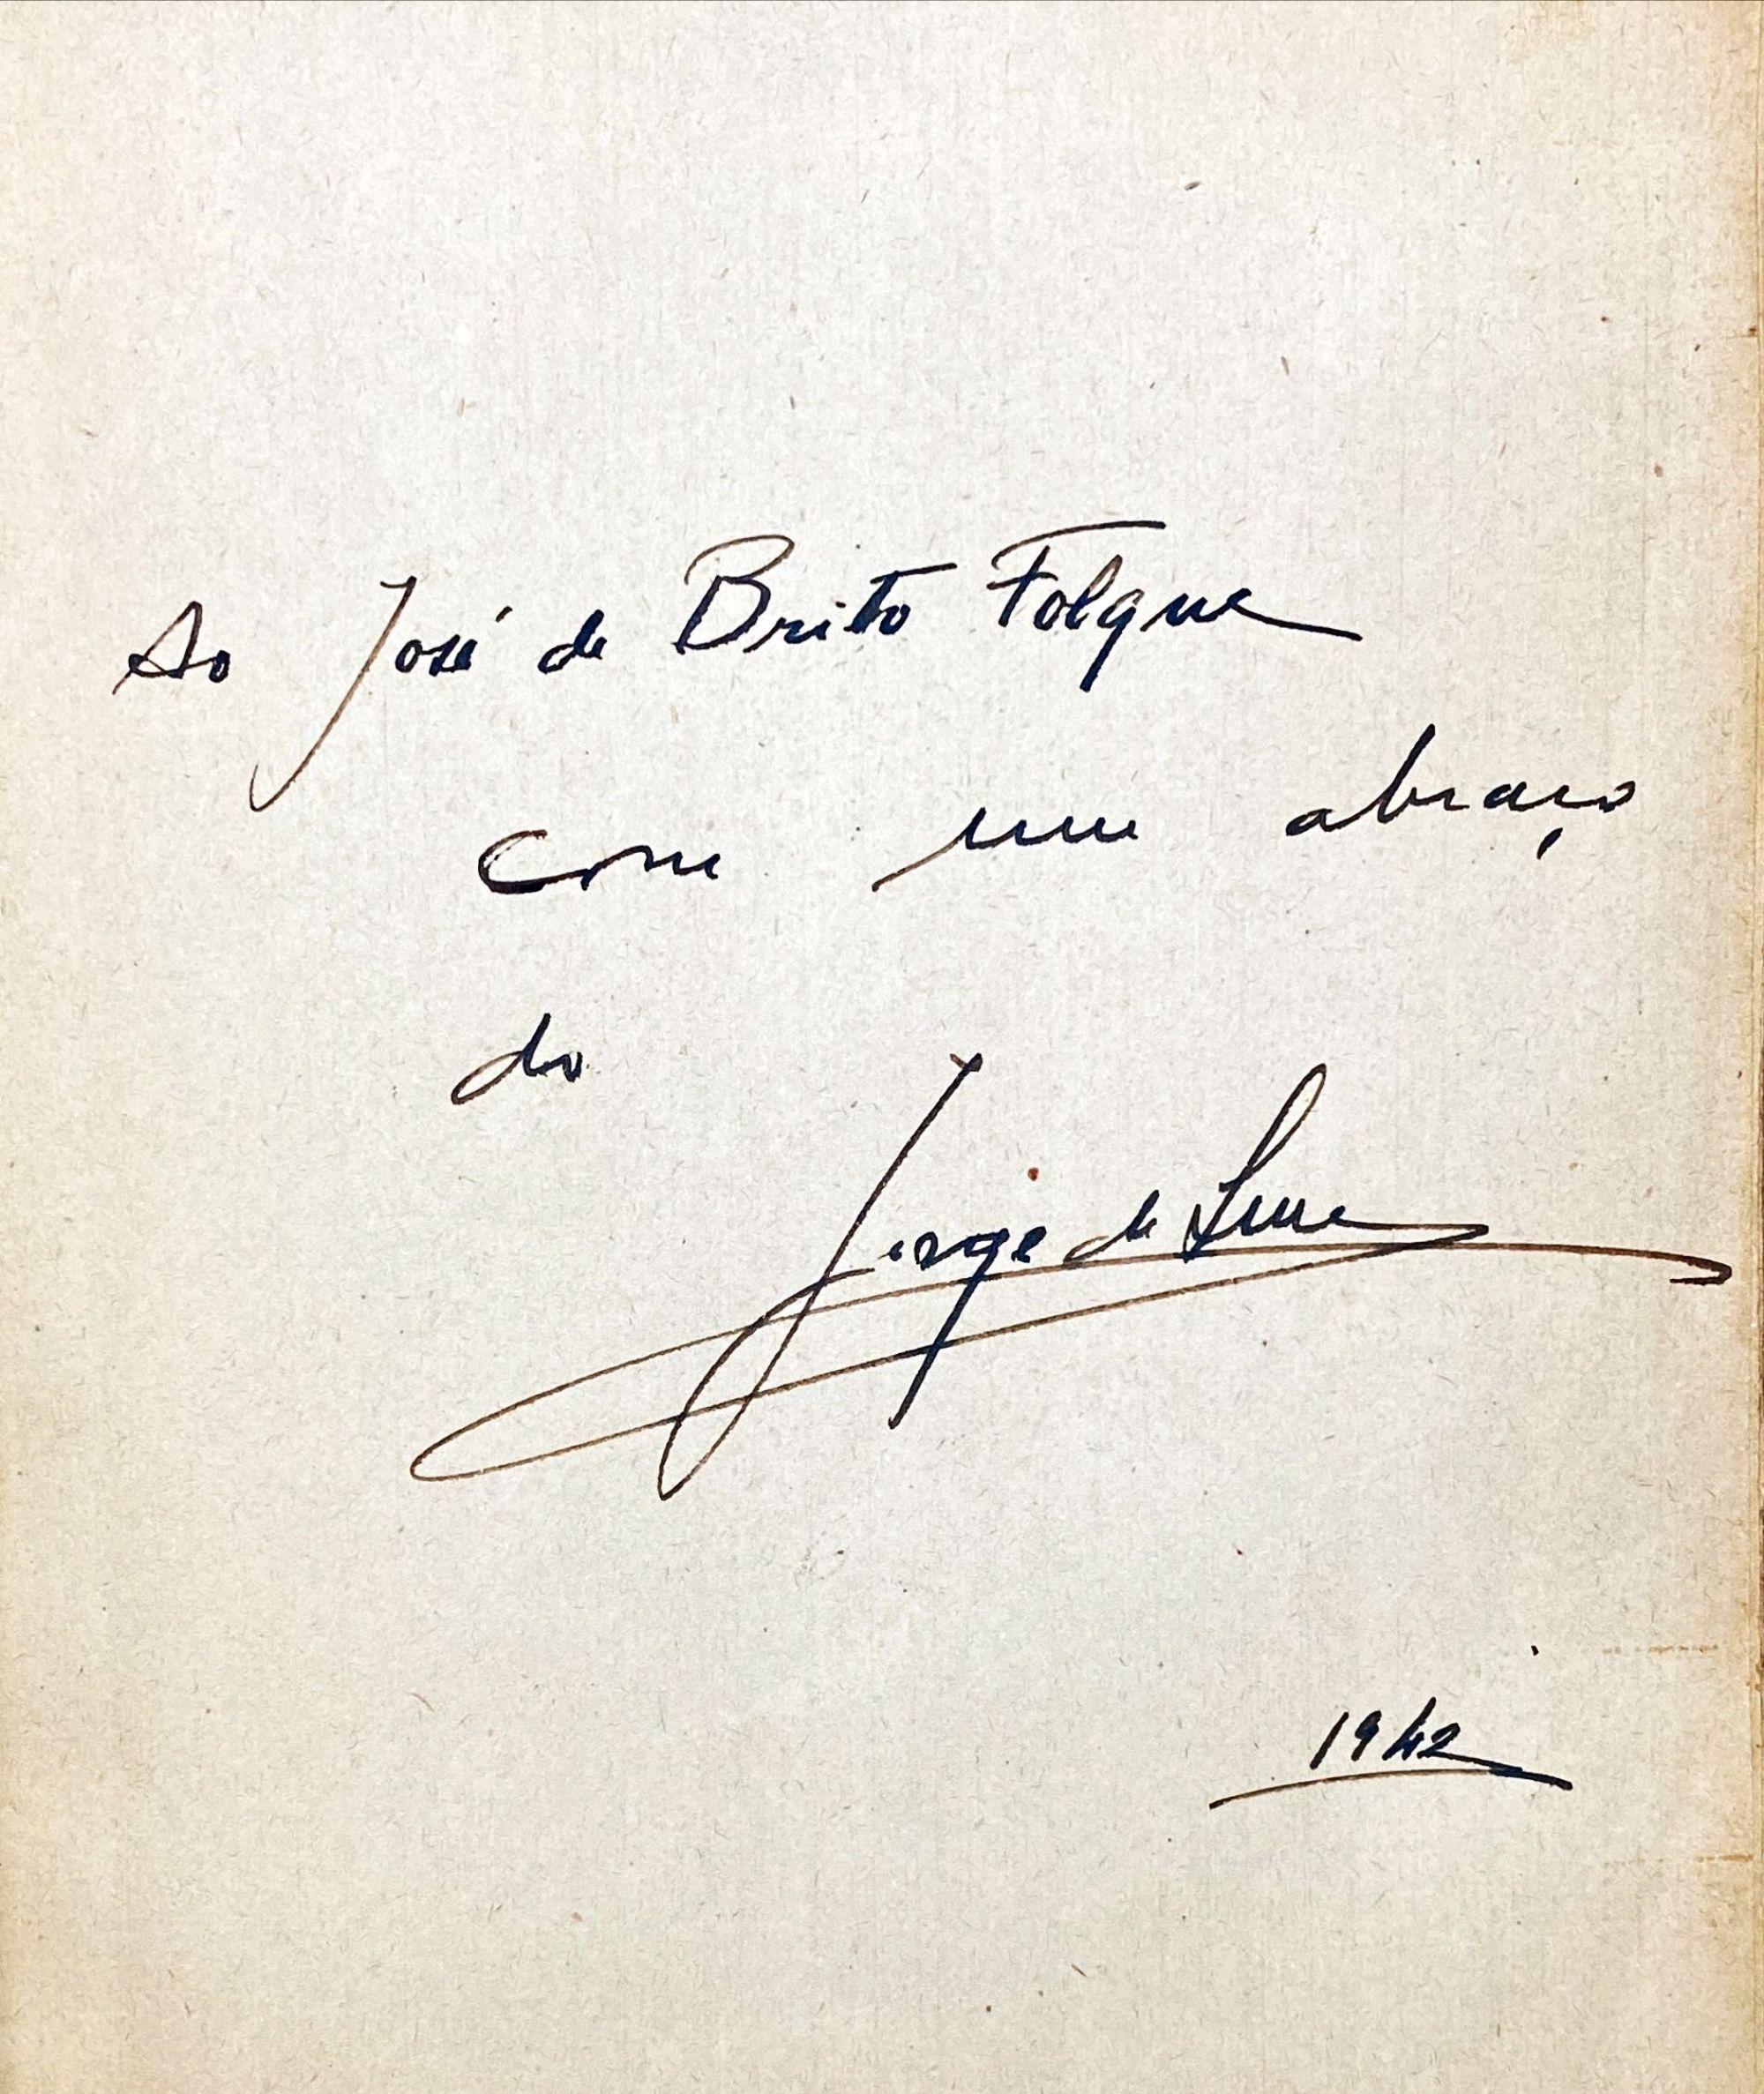 Ao José de Brito Folque
com um abraço
do
Jorge de Lima
1942